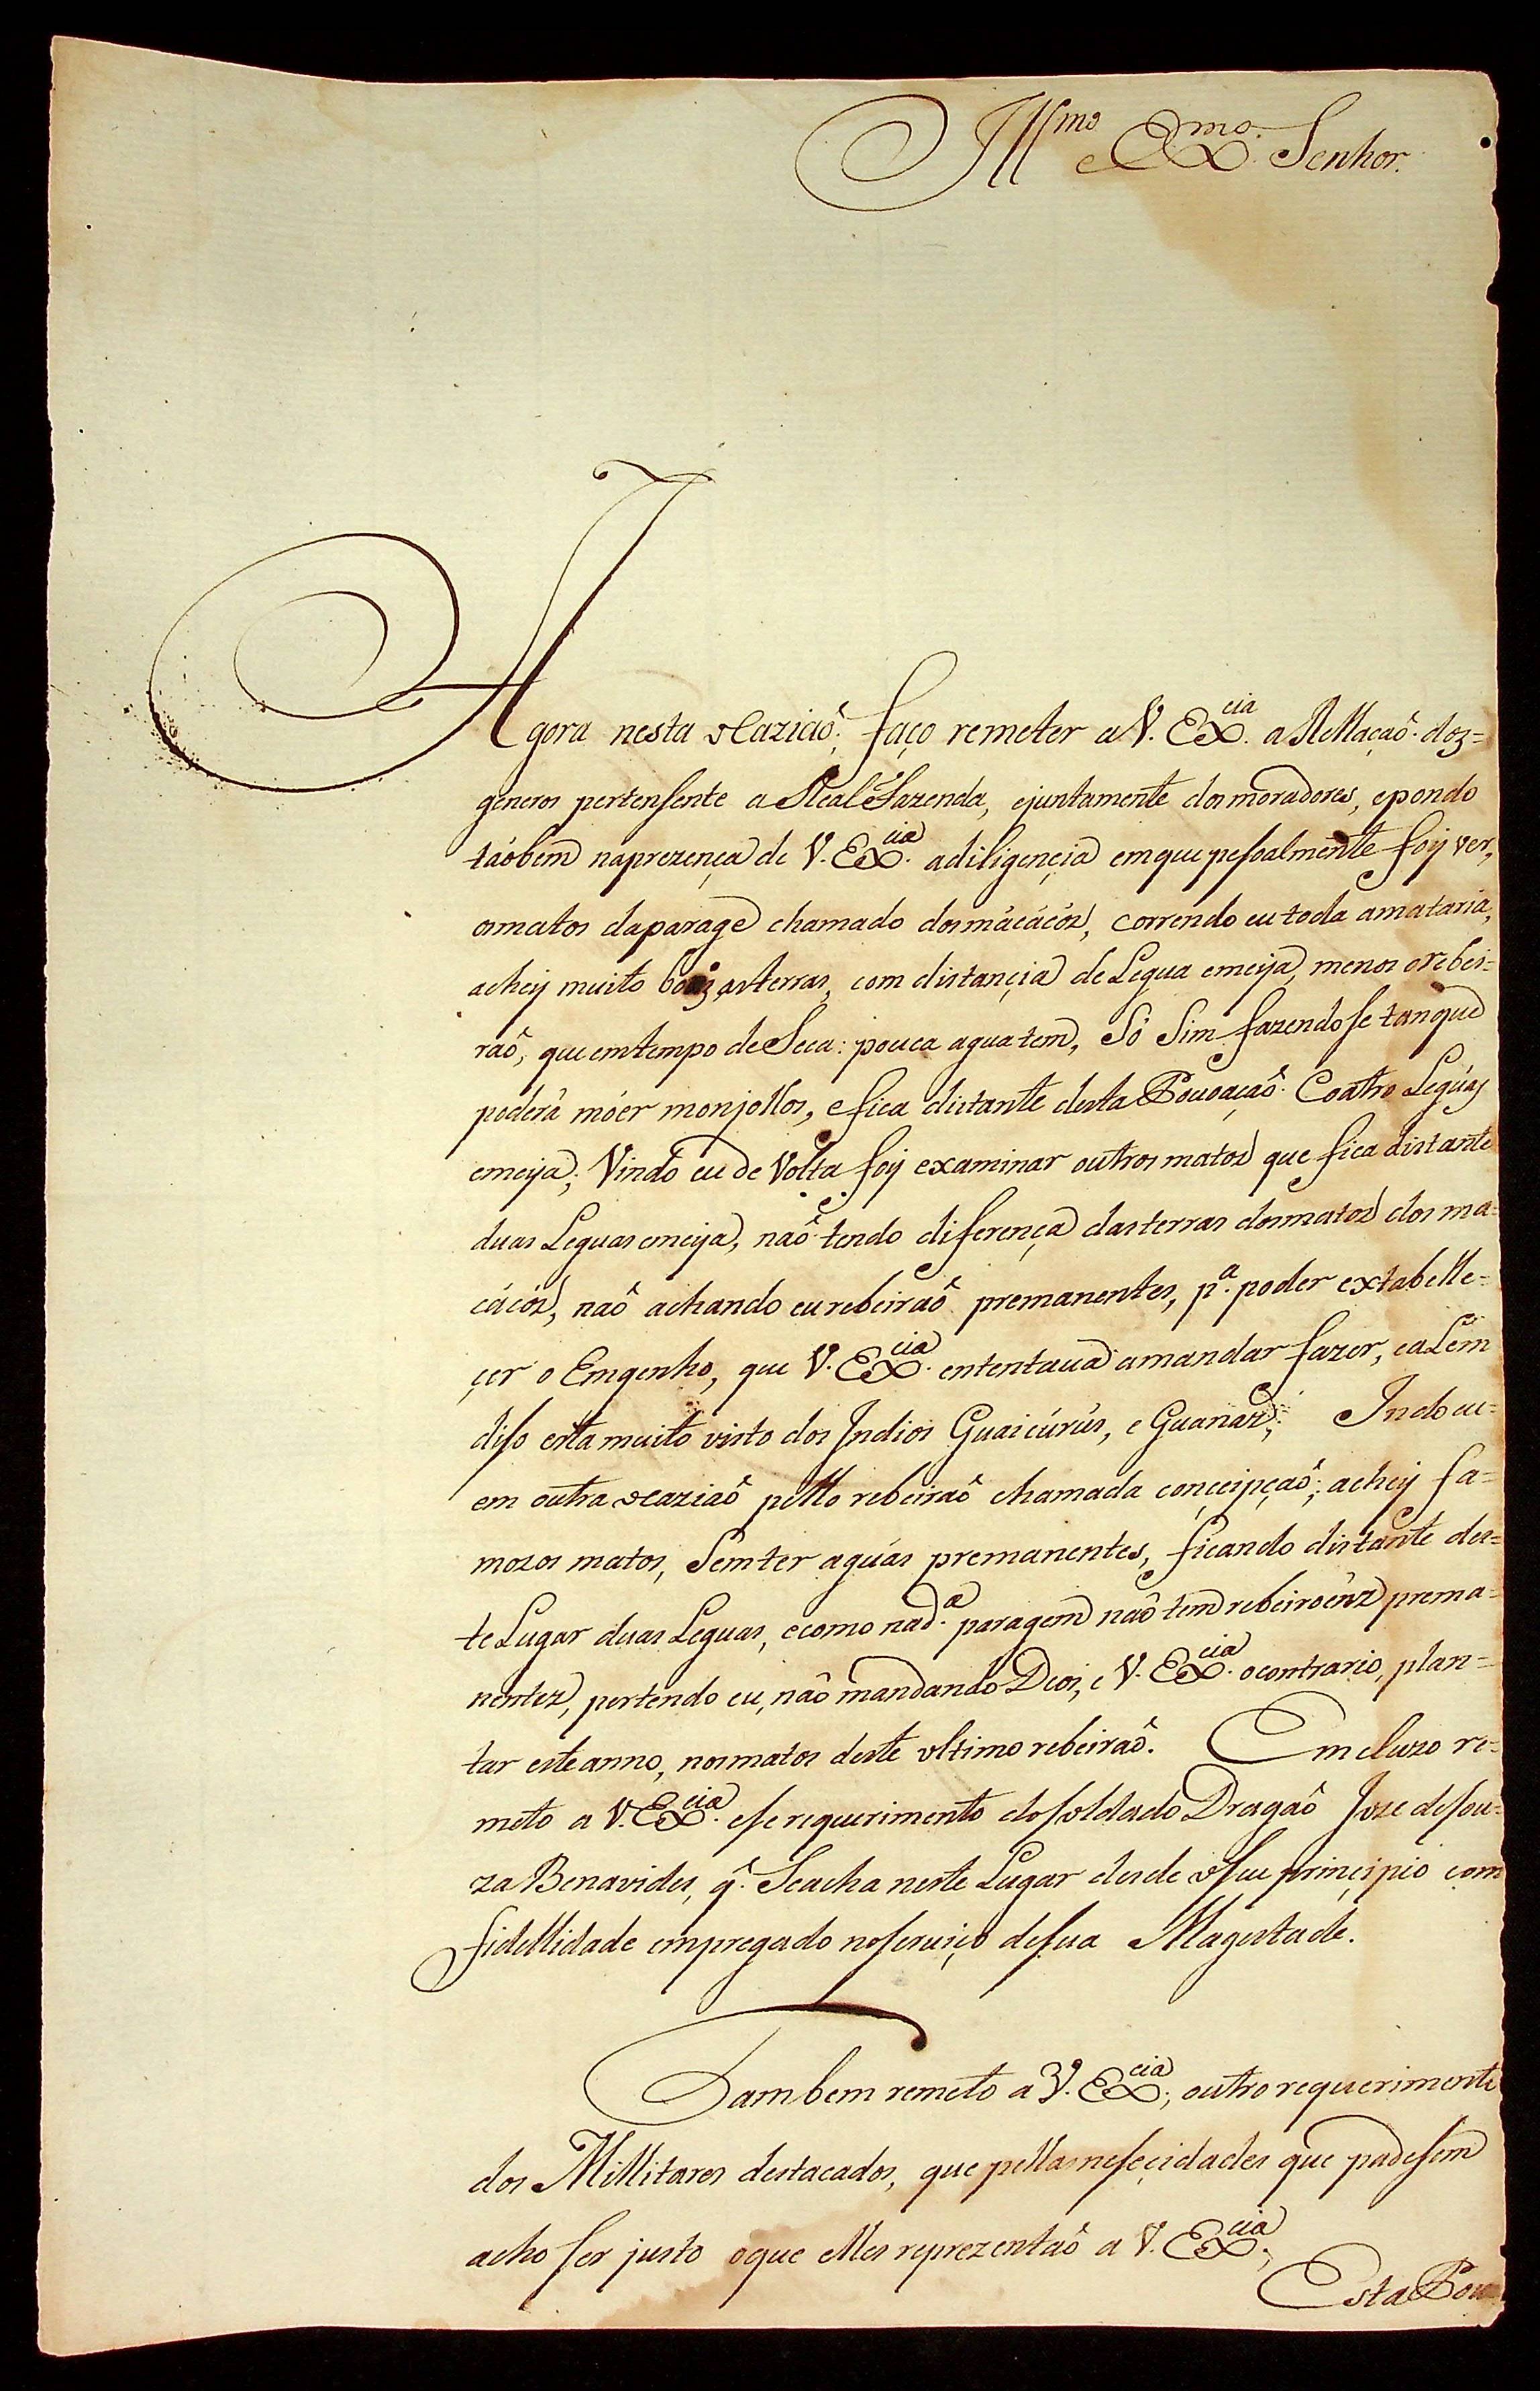 Illmo e Exmo. Senhor.
Agora nesta ocaziaõ; faço remeter a V. Excia. a Rellaçaõ. doz=
generos pertensente a Real Fazenda, ejuntamente dos moradores, epondo
táobem naprezença de V. Excia. adiligençia emque pesoalmente foij ver,
osmatos daparage chamado dos mácácóz, correndo eu toda amataria,
acheij muito boaz asterras, com distançia de Legua emeija, menos orebei=
raõ, que emtempo de Seca: pouca agua tem, Só Sim fazendose tanque
poderá móer monjollos, efica distante desta Povoaçaõ. Coatro Legúas
emeija; Vindo eu de Volta foij examinar outros matoz que fica distante
duas Leguas emeija, naõ tendo diferença das terras dosmatoz dos ma=
cácóz, naõ achando eu rebeiraõ premanentes, pa. poder extabelle=
çer o Emgenho, que V. Excia. ententaua amandar fazer, ealem
diso esta muito visto dos Indios Guaicúrús, e Guanaz; Indo eu=
em outra ocaziaõ pello rebeiraõ chamada conçeipçaõ; acheij fa=
mozos matos, Sem ter agúas premanentes, ficando distante des=
te Lugar duas Leguas, ecomo nad.a paragem naõ tem rebeiroẽnz prema=
nentez, pertendo eu, naõ mandando Deos, e V. Excia. ocontrario, plan=
tar este anno, nosmatos deste vltimo rebeiraõ. Emcluzo re=
meto a V. Excia. ese requerimento dosoldado Dragaõ Joze desou=
za Benavides, q. Seacha neste Lugar desde oseu prinçipio com
fidellidade empregado noseruiço desua Magestade.
Tambem remeto a V. Excia; outro requerimento
dos Millitares destacados, que pellas neseçidades que padesem
acho ser justo oque elles reprezentaõ a V. Excia;
Esta Pou